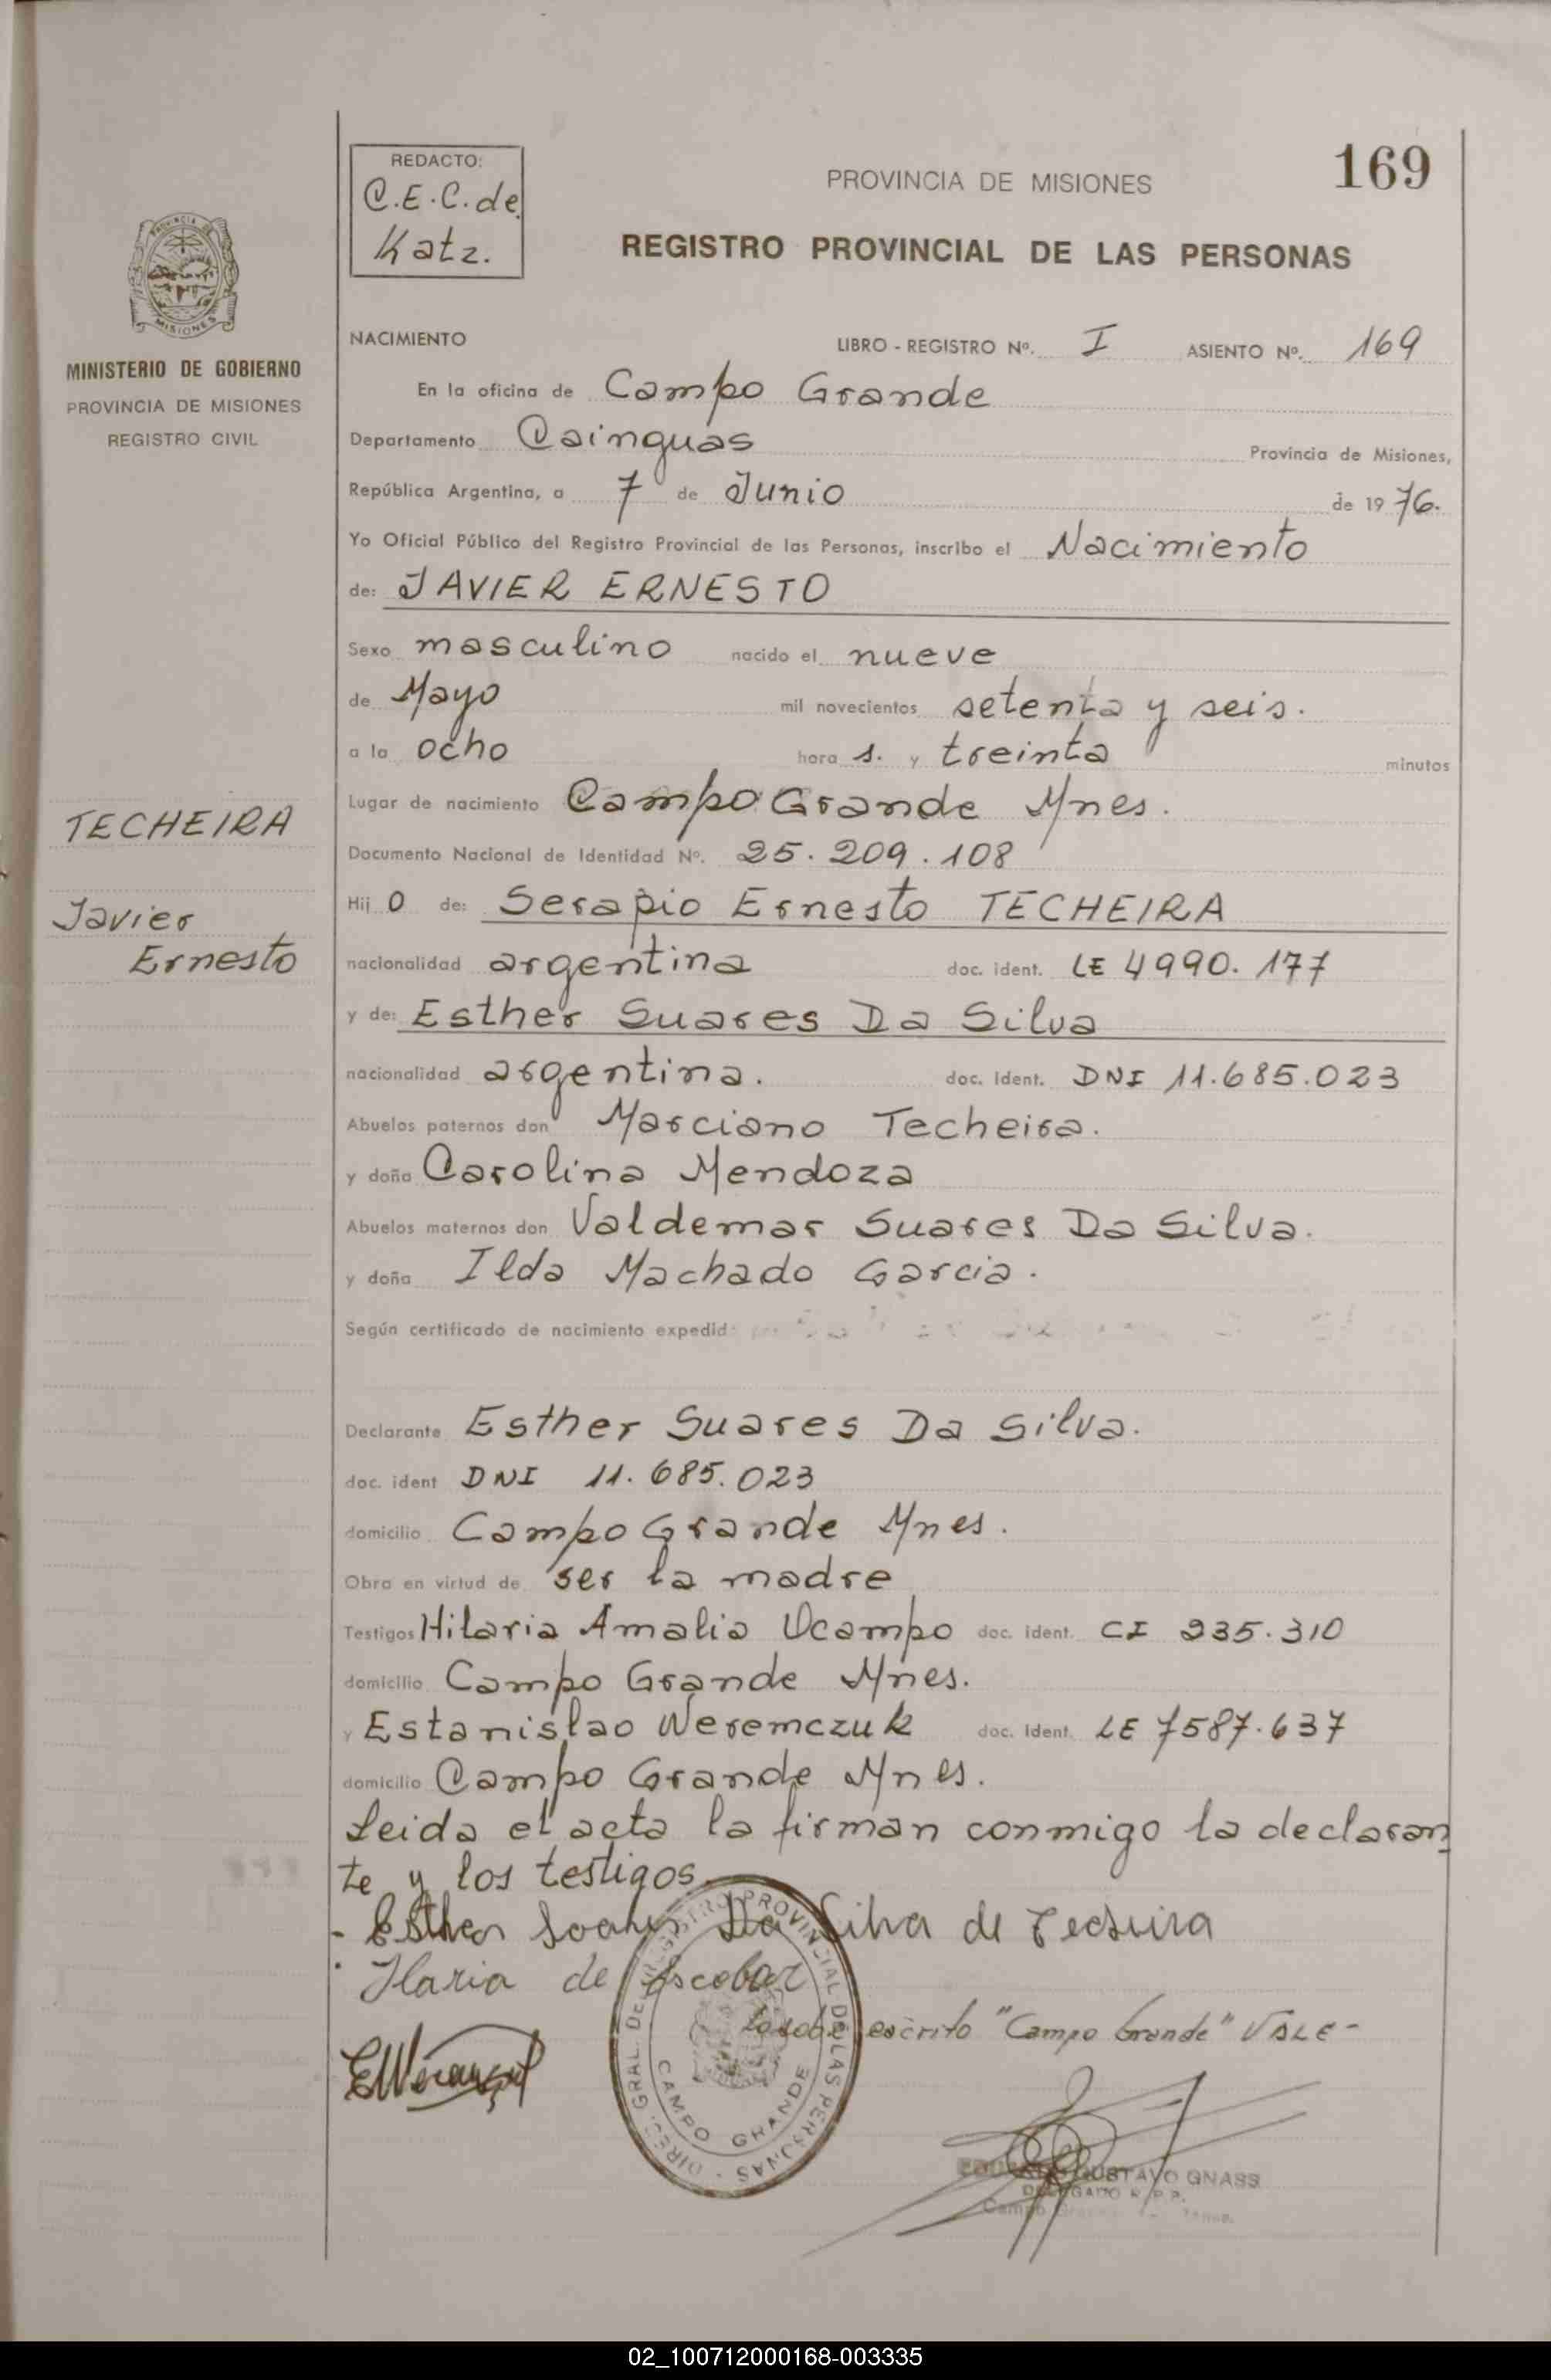 169
REDACTO:
C.E.C. de
Katz.
PROVINCIA DE MISIONES
REGISTRO PROVINCIAL DE LAS PERSONAS
MISIONES
MINISTERIO DE GOBIERNO
PROVINCIA DE MISIONES
REGISTRO CIVIL
TECHEIRA
Javier
Ernesto
NACIMIENTO LIBRO - REGISTRO Nº. I ASIENTO Nº. 169
En la oficina de Campo Grande
Departamento Cainguás Provincia de Misiones,
República Argentina, a 7 de Junio de 1976.
Yo Oficial Público del Registro Provincial de las Personas, inscribo el Nacimiento
de: JAVIER ERNESTO
Sexo masculino nacido el nueve
de Mayo mil novecientos setenta y seis.
a la ocho hora s. y treinta minutos
Lugar de nacimiento Campo Grande Mnes.
Documento Nacional de Identidad Nº. 25.209.108
Hij o de: Serapio Ernesto TECHEIRA
nacionalidad argentina doc. ident. LE 4990.177
y de: Esther Suares Da Silva
nacionalidad argentina. doc. ident. DNI 11.685.023
Abuelos paternos don Marciano Techeira.
y doña Carolina Mendoza
Abuelos maternos don Valdemar Suares Da Silva.
y doña Ilda Machado Garcia.
Según certificado de nacimiento expedid
Declarante Esther Suares Da Silva.
doc. ident DNI 11.685.023
domicilio Campo Grande Mnes.
Obra en virtud de ser la madre
Testigos Hilaria Amalia Ocampo doc. ident. CI 235.310
domicilio Campo Grande Mnes.
y Estanislao Weremczuk doc. ident. LE 7587.637
domicilio Campo Grande Mnes.
Leida el acta la firman conmigo la declaran
te y los testigos.
- Esther Soares Da Silva de Techeira
Ilaria de Escobar
escrito "Campo Grande" VALE -
DIREC. GRAL. DEL REGISTRO PROVINCIAL DE LAS PERSONAS
CAMPO GRANDE
GUSTAVO GNASS
DELEGADO R.P.P.
02_100712000168-003335